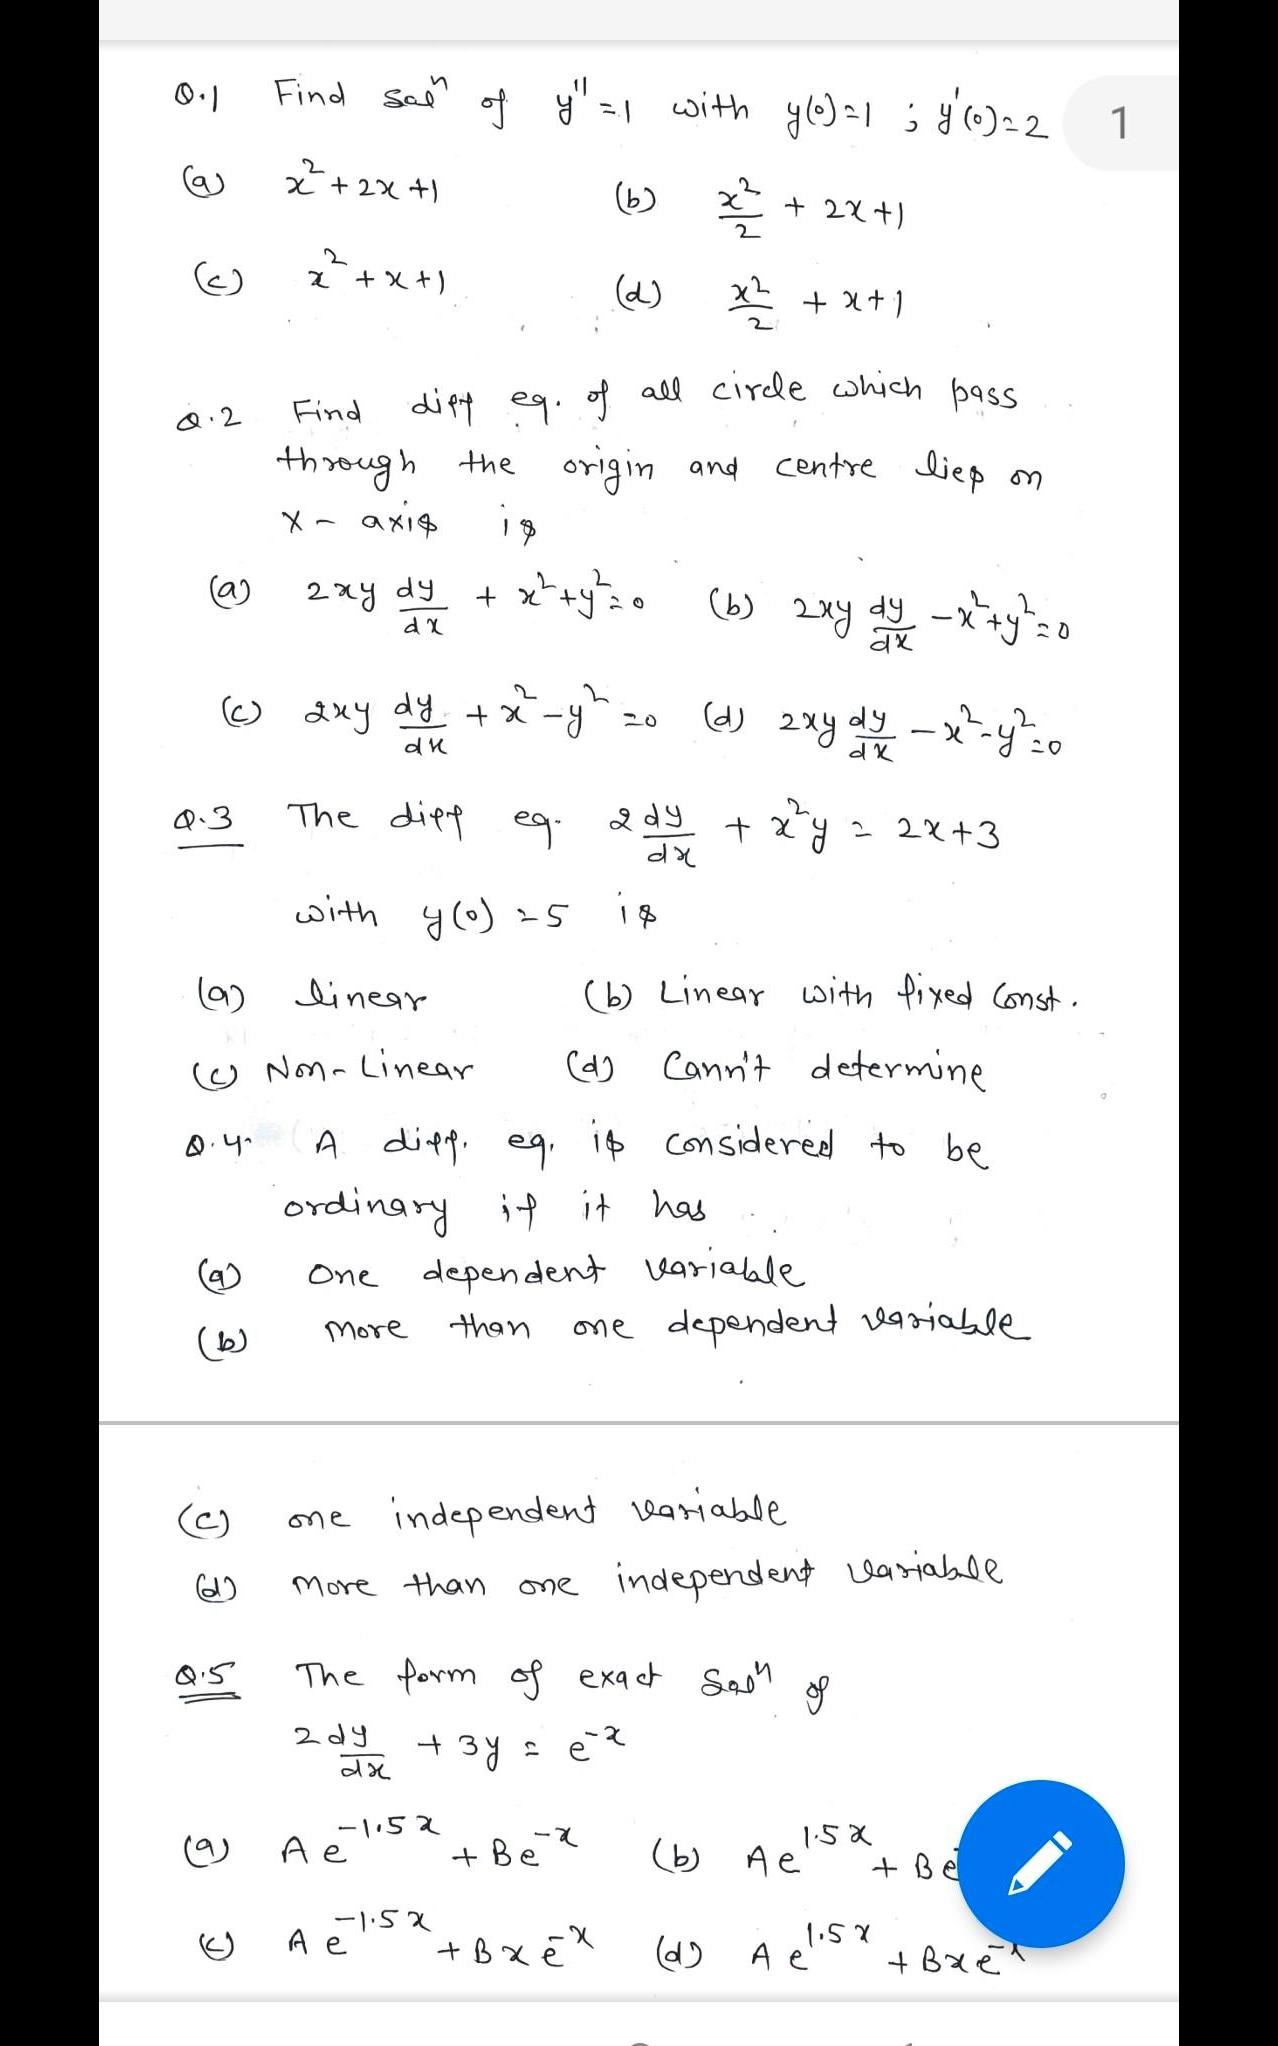 Q.1 Find solⁿ of y'' = 1 with y(0) = 1 ; y'(0) = 2
1
(a) x² + 2x + 1 (b) x²/2 + 2x + 1
(c) x² + x + 1 (d) x²/2 + x + 1
Q.2 Find diff eq. of all circle which pass
through the origin and centre lies on
x - axis is
(a) 2xy dy/dx + x² + y² = 0 (b) 2xy dy/dx - x² + y² = 0
(c) 2xy dy/dx + x² - y² = 0 (d) 2xy dy/dx - x² - y² = 0
Q.3 The diff eq. 2 dy/dx + x²y = 2x + 3
with y(0) = 5 is
(a) linear (b) Linear with fixed Const.
(c) Non-Linear (d) Cann't determine
Q.4. A diff. eq. is considered to be
ordinary if it has
(a) One dependent variable
(b) More than one dependent variable
(c) one independent variable
(d) More than one independent variable
Q.5 The form of exact solⁿ of
2 dy/dx + 3y = e^-x
(a) A e^-1.5x + B e^-x (b) A e^1.5x + B e
(c) A e^-1.5x + B x e^-x (d) A e^1.5x + B x e^-x